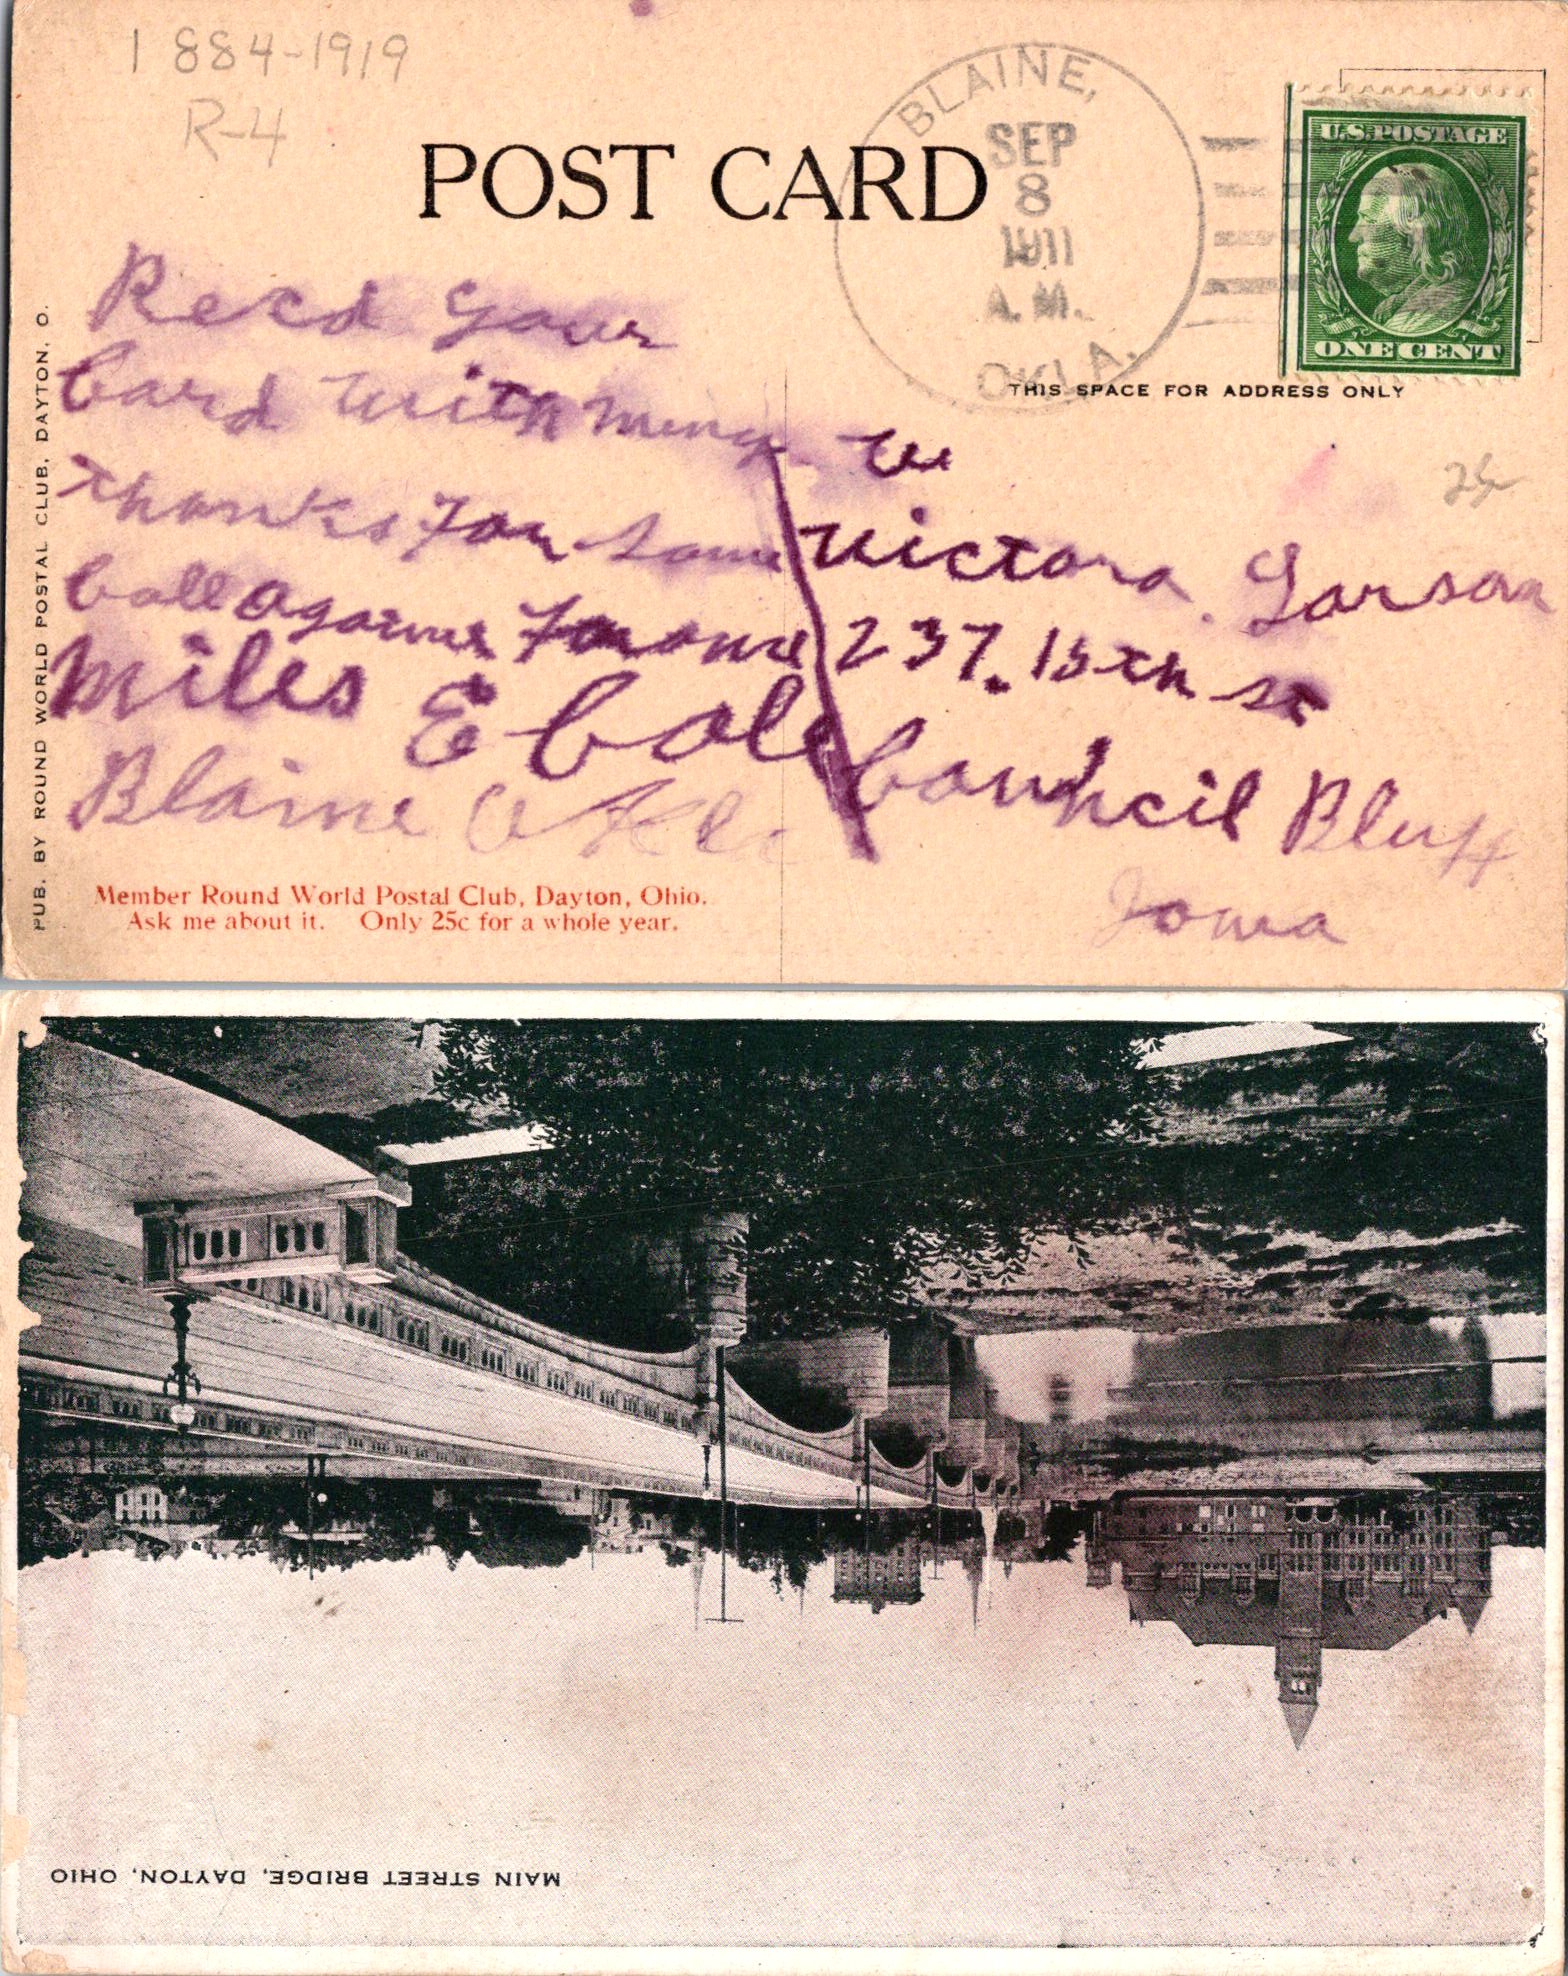 1884-1919
R-4
POST CARD
BLAINE,
SEP
8
1911
A.M.
OKLA.
U.S. POSTAGE
ONE CENT
THIS SPACE FOR ADDRESS ONLY
PUB. BY ROUND WORLD POSTAL CLUB, DAYTON, O.
Recd your
Card with meny
thanks for same
Call againe for one
Miles E Cole
Blaine Okla
Victora Larson
237. 15th st
Council Bluff
Iowa
Member Round World Postal Club, Dayton, Ohio.
Ask me about it. Only 25c for a whole year.
MAIN STREET BRIDGE, DAYTON, OHIO